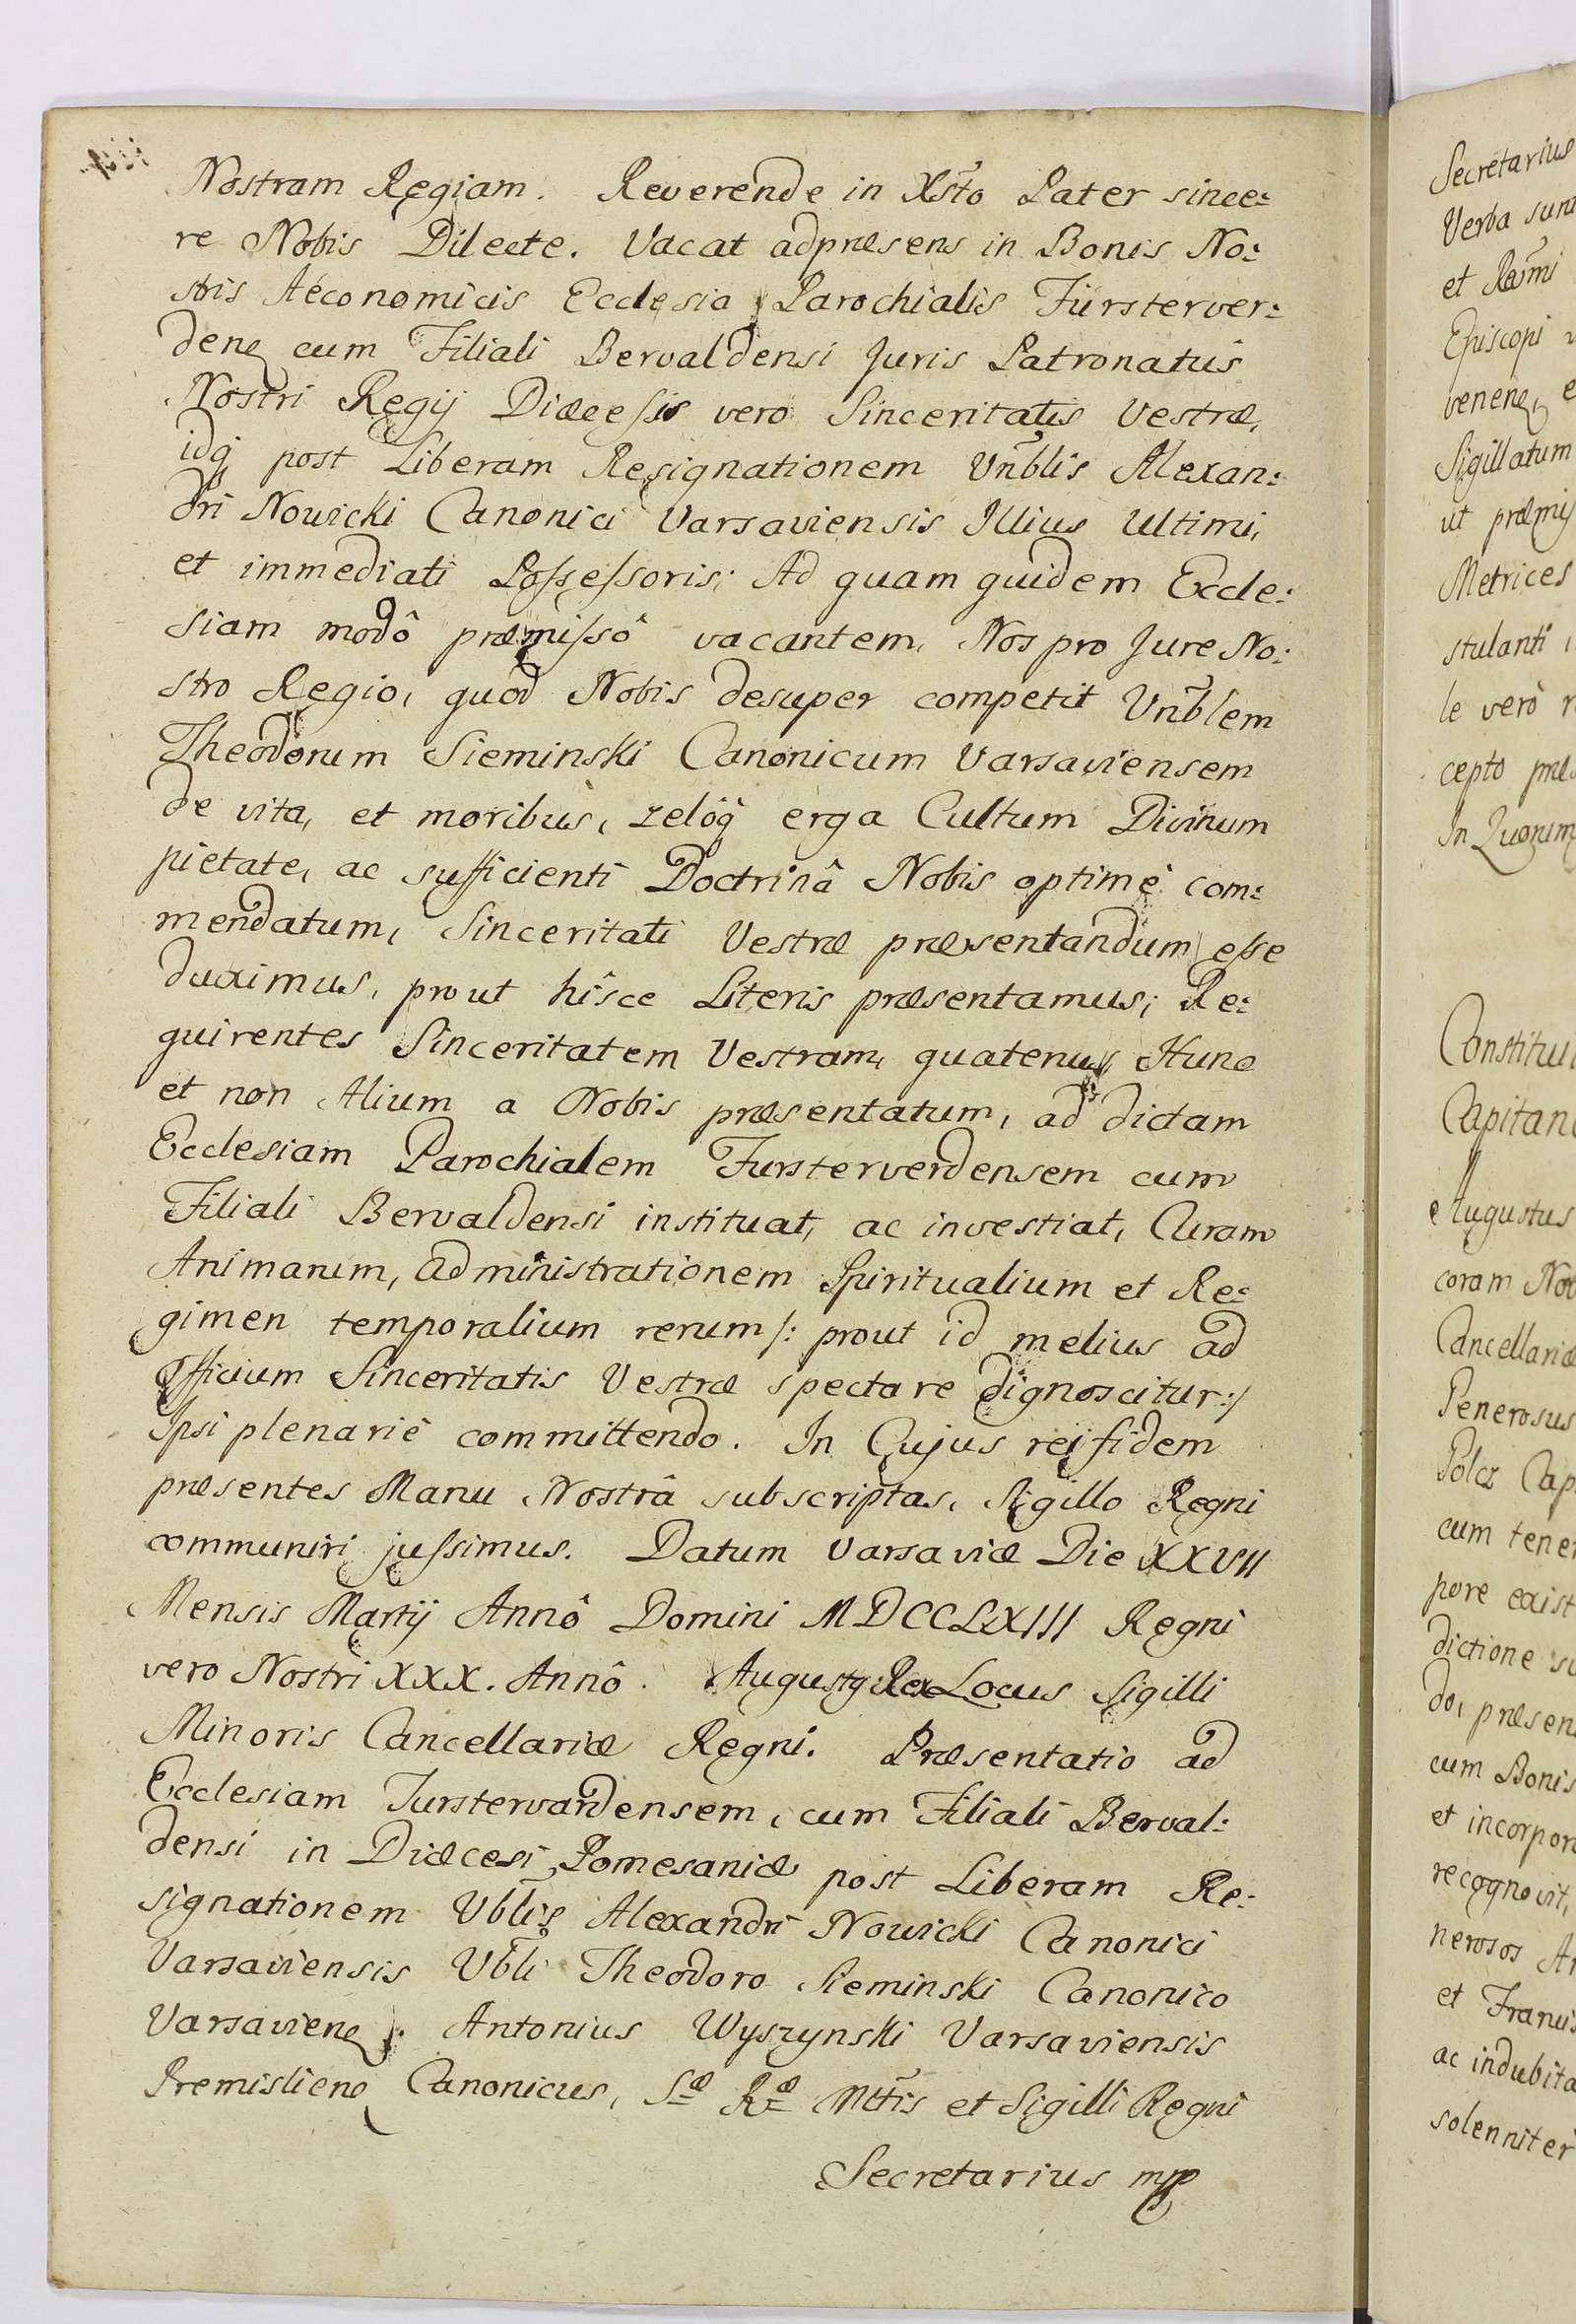 Nostram Regiam. Reverende in Xsto Pater since:
re Nobis Dilecte. Vacat ad præsens in Bonis No:
stris Aéconomicis Ecclesia Parochialis Fürsterver:
denę cum Filiali Bervaldensi Juris Patronatûs
Nostri Regij Diæcesis vero Sinceritatis Vestræ,
idq̃ post Liberam Resignationem Vn̄blis Alexan:
dri Nowicki Canonici Varsaviensis Illius Ultimi,
et immediati Poſseſsoris; Ad quam quidem Eccle:
siam modô præmiſsô vacantem, Nos pro Jure No:
stro Regio, quod Nobis desuper competit Vn̄blem
Theodorum Sieminski Canonicum Varsaviensem
de vita, et moribus, zelóq̃ erga Cultum Divinum
pietate, ac sufficienti Doctrinâ Nobis optimè com:
mendatum, Sinceritati Vestræ præsentandum eſse
duximus, prout hîsce Literis præsentamus; Re:
quirentes Sinceritatem Vestram, quatenus, Hunc
et non Alium a Nobis præsentatum, ad dictam
Ecclesiam Parochialem Fursterverdensem cum
Filiali Bervaldensi instituat, ac investiat, Curam
Animarum, administrationem Spiritualium et Re:
gimen temporalium rerum /: prout id melius ad
Officium Sinceritatis Vestræ spectare dignoscitur :/
Ipsi plenariè committendo. In Cujus rei fidem
præsentes Manu Nostrâ subscriptas, Sigillo Regni
communiri juſsimus. Datum Varsaviæ Die XXVII
Mensis Martij Annô Domini MDCCLXIII Regni
vero Nostri XXX. Annô. Augustꝰ Rex Locus Sigilli
Minoris Cancellariæ Regni. Præsentatio ad
Ecclesiam Furstervardensem, cum Filiali Berval:
densi in Diæcesi Pomesaniæ post Liberam Re:
signationem Vb̄lis Alexandri Nowicki Canonici
Varsaviensis Vb̄li Theodoro Sieminski Canonico
Varsavienę. Antonius Wyszynski Varsaviensis
Premislienę Canonicus, Sæ Ræ Mttis et Sigilli Regni
Secretarius mp
Secretarius
Verba sunt
et Rm̄i
Episcopi
venenę, e
Sigillatum
ut præmis
Metrices
stulanti
le verò r
cepto præs
In Quorum
Constitui
Capitane
Augustus
coram No
Cancellariæ
Generosus
Polcz Cap
cum tener
pore exist
dictione su
do, præsen
cum Bonis
et incorpora
recognovit,
nerosos A
et Francis
ac indubita
solenniter